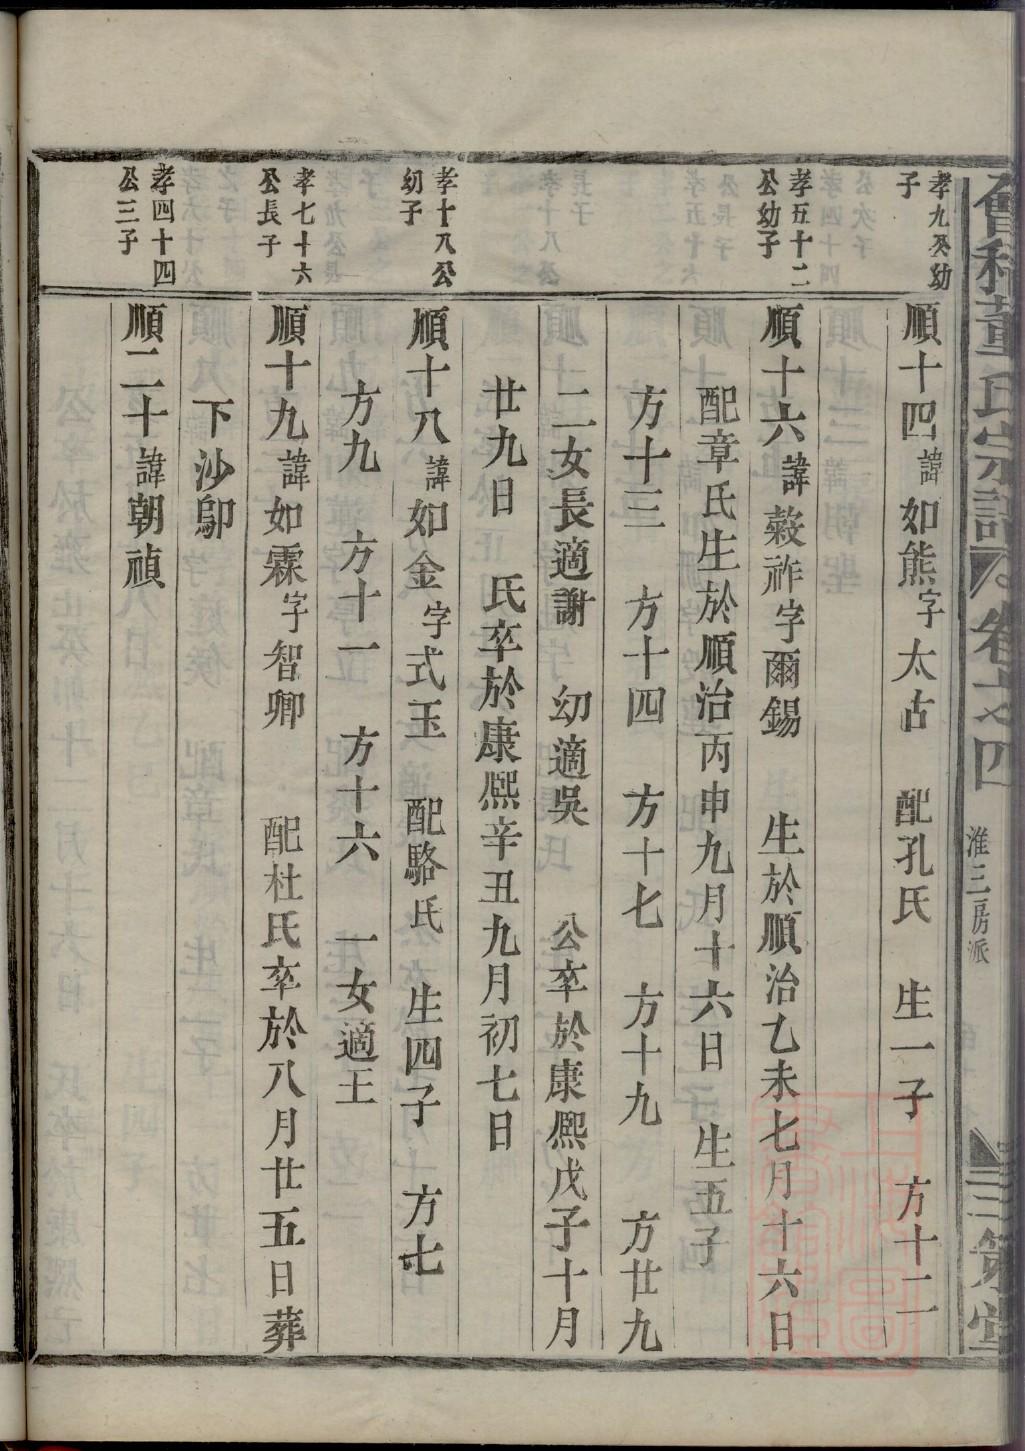 會稽董氏宗譜 卷之四 淮三房派 三策堂
孝九公幼
子
順十四諱如熊字太占 配孔氏 生一子 方十二
孝五十二
公幼子
順十六諱穀祚字爾錫 生於順治乙未七月十六日
配章氏生於順治丙申九月十六日 生五子
方十三 方十四 方十七 方十九 方廿九
二女長適謝 幼適吳 公卒於康熙戊子十月
廿九日 氏卒於康熙辛丑九月初七日
孝十八公
幼子
順十八諱如金字式玉 配駱氏 生四子 方七
方九 方十一 方十六 一女適王
孝七十六
公長子
順十九諱如霖字智卿 配杜氏卒於八月廿五日葬
下沙鄔
孝四十四
公三子
順二十諱朝禎